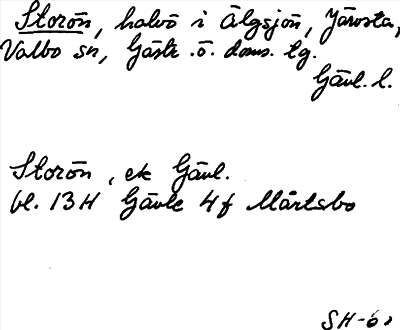 Storön, halvö i Älgsjön, Järvsta,
Valbo sn, Gästr. ö. doms. tg.
Gävl. l.
Storön, ek Gävl.
bl. 13H Gävle 4f Mårtsbo
SH-62